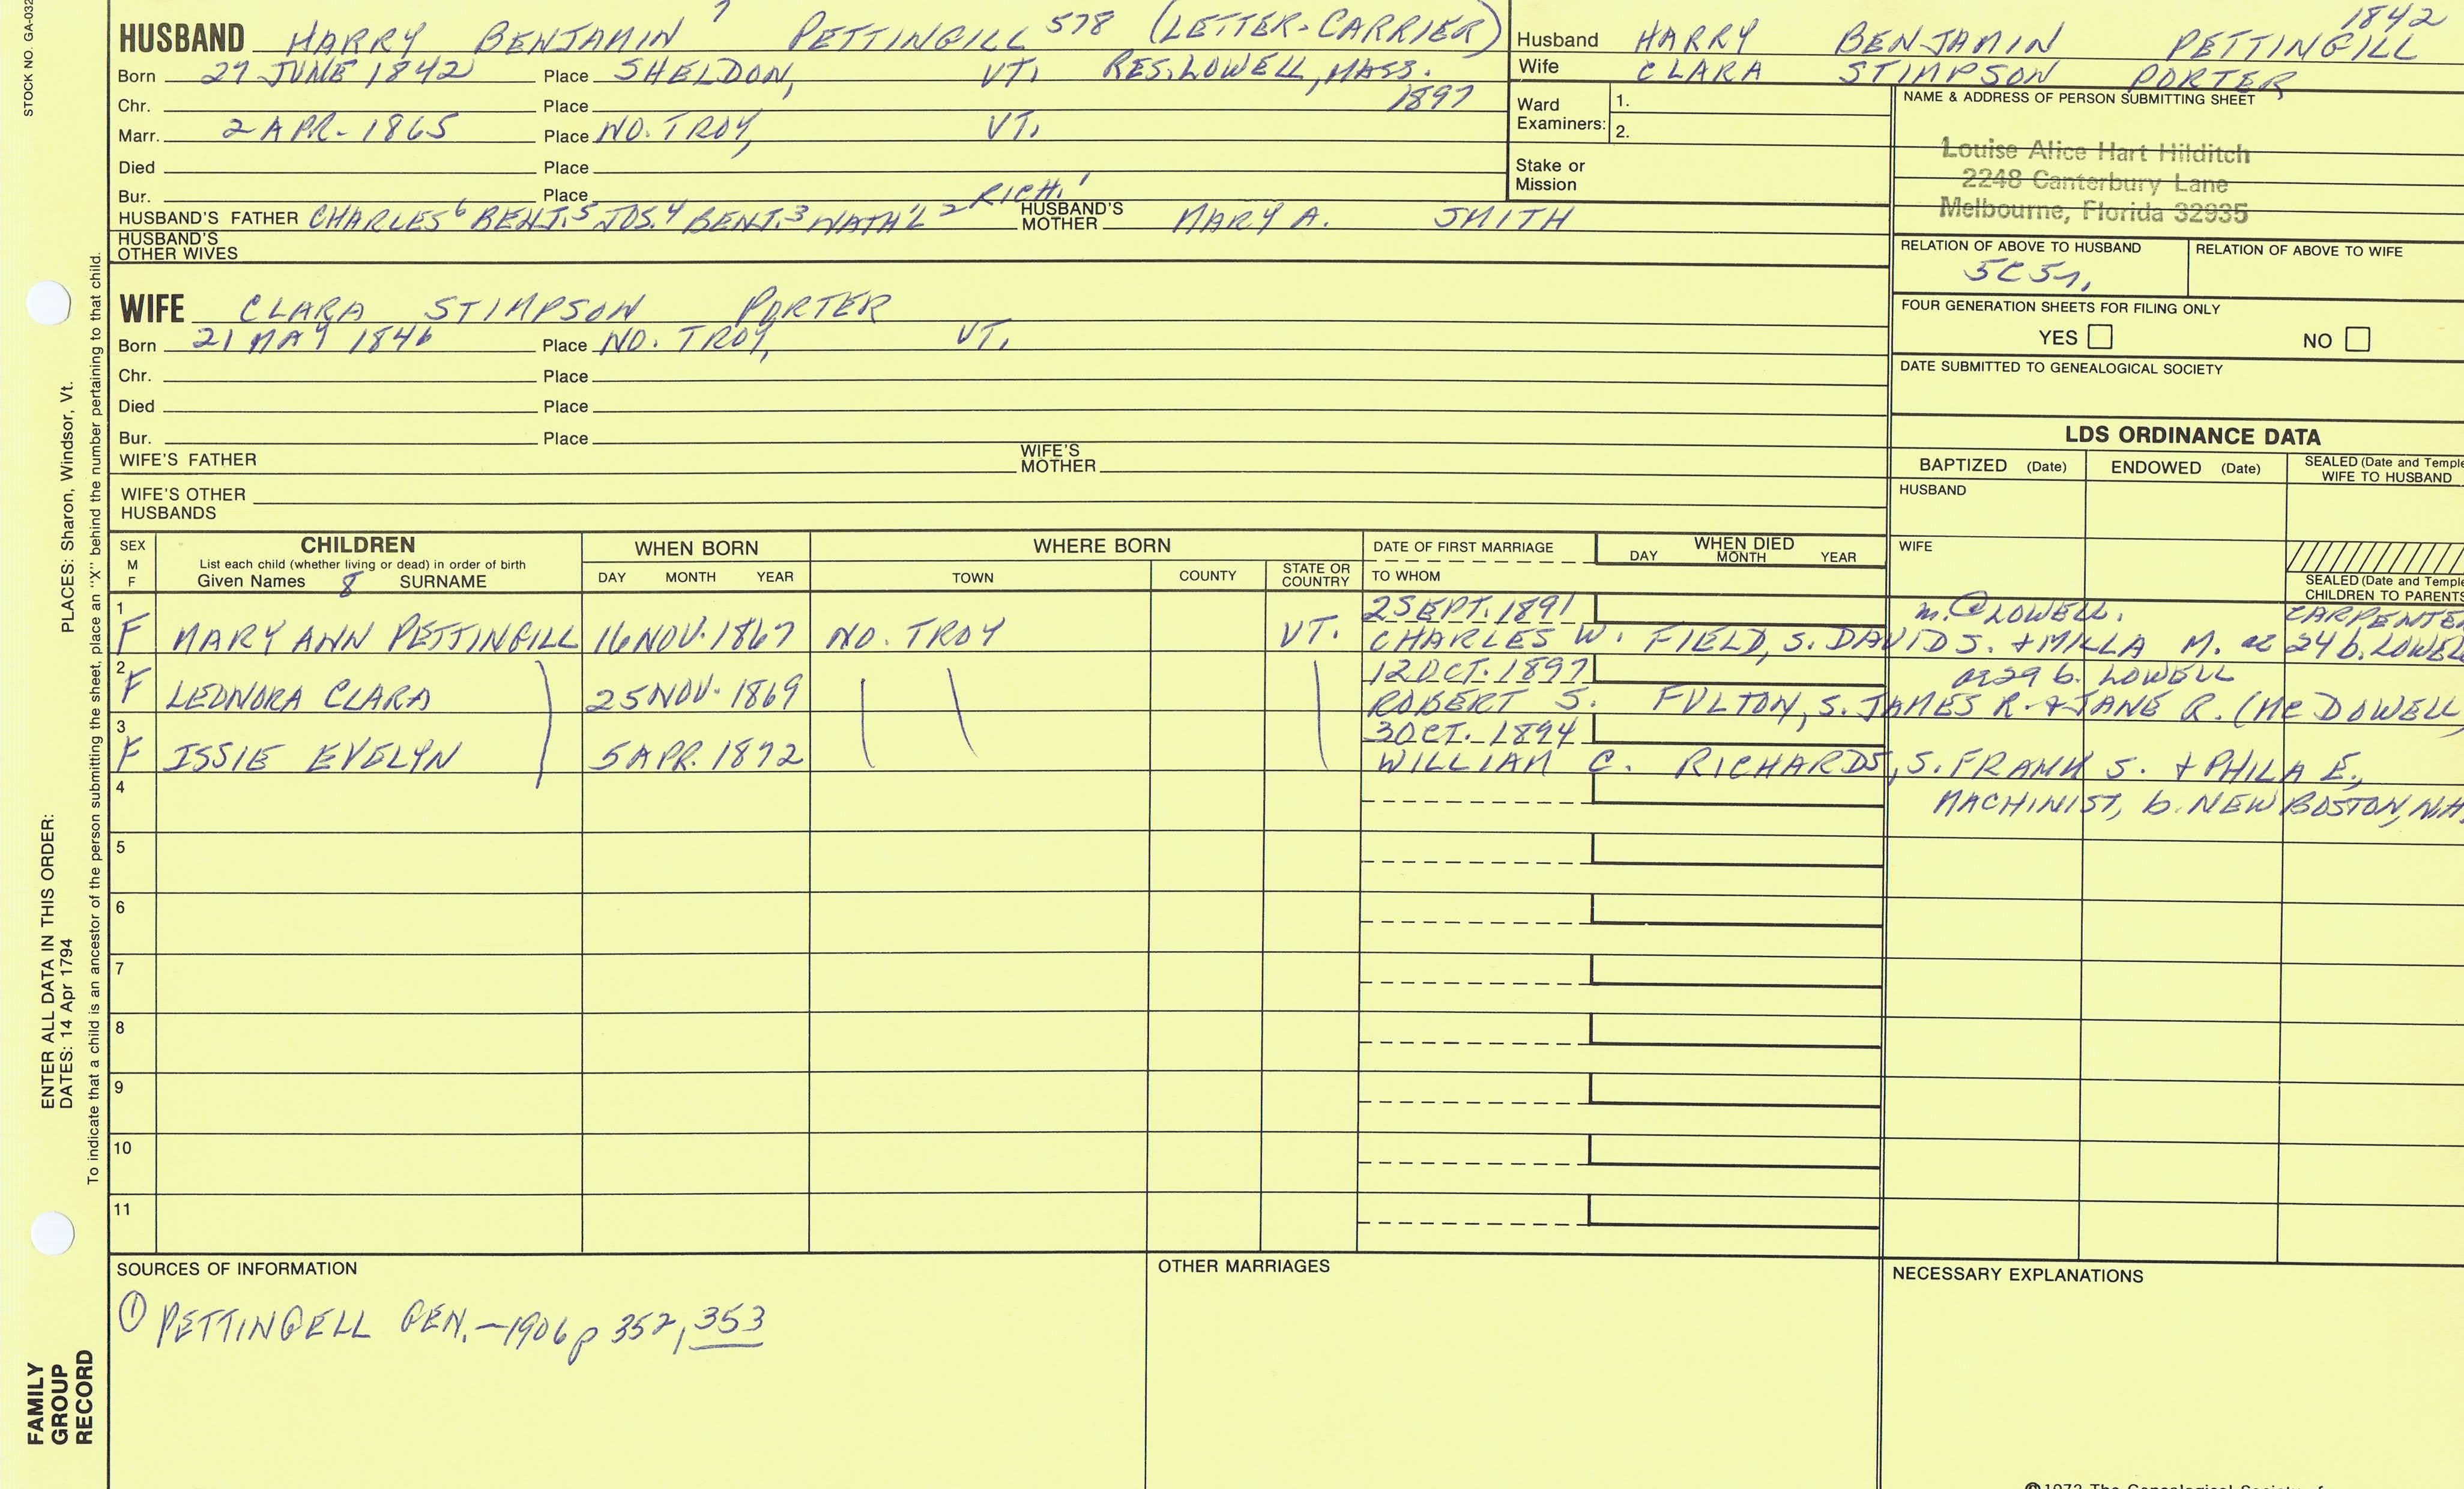 STOCK NO. GA-032
HUSBAND HARRY BENJAMIN 7 PETTINGILL 578 (LETTER-CARRIER)
Born 27 JUNE 1842 Place SHELDON, VT. RES. LOWELL, MASS.
Chr. Place 1897
Marr. 2 APR. 1865 Place NO. TROY, VT.
Died Place
Bur. Place
HUSBAND'S FATHER CHARLES 6 BENJ. 5 JOS. 4 BENJ. 3 NATH'L 2 RICH. 1 HUSBAND'S MOTHER MARY A. SMITH
HUSBAND'S OTHER WIVES
Husband HARRY BENJAMIN PETTINGILL 1842
Wife CLARA STIMPSON PORTER
Ward Examiners: 1.
2.
Stake or Mission
NAME & ADDRESS OF PERSON SUBMITTING SHEET
Louise Alice Hart Hilditch
2248 Canterbury Lane
Melbourne, Florida 32935
RELATION OF ABOVE TO HUSBAND RELATION OF ABOVE TO WIFE
FOUR GENERATION SHEETS FOR FILING ONLY
YES NO
DATE SUBMITTED TO GENEALOGICAL SOCIETY
WIFE CLARA STIMPSON PORTER
Born 21 MAY 1846 Place NO. TROY, VT.
Chr. Place
Died Place
Bur. Place
WIFE'S FATHER WIFE'S MOTHER
WIFE'S OTHER HUSBANDS
LDS ORDINANCE DATA
BAPTIZED (Date) ENDOWED (Date) SEALED (Date and Temple
WIFE TO HUSBAND
HUSBAND
WIFE
SEALED (Date and Temple
CHILDREN TO PARENTS
SEX M F
CHILDREN
List each child (whether living or dead) in order of birth
Given Names 8 SURNAME
WHEN BORN
DAY MONTH YEAR
WHERE BORN
TOWN COUNTY STATE OR COUNTRY
DATE OF FIRST MARRIAGE
TO WHOM
WHEN DIED
DAY MONTH YEAR
1 2 SEPT. 1891 m. @ LOWELL. CARPENTER
F MARY ANN PETTINGILL 16 NOV. 1867 NO. TROY VT. CHARLES W. FIELD, S. DAVID S. + MILLA M. ae 24 b. LOWELL
2 12 OCT. 1897 ae 29 b. LOWELL
F LEONORA CLARA 25 NOV. 1869 ROBERT S. FULTON, S. JAMES R. + JANE R. (McDOWELL)
3 3 OCT. 1894
F ISSIE EVELYN 5 APR. 1872 WILLIAM C. RICHARDS, S. FRANK S. + PHILA E.,
4 MACHINIST, b. NEW BOSTON, NH.
5
6
7
8
9
10
11
SOURCES OF INFORMATION
① PETTINGELL GEN. — 1906 p 352, 353
OTHER MARRIAGES
NECESSARY EXPLANATIONS
PLACES: Sharon, Windsor, Vt.
ENTER ALL DATA IN THIS ORDER:
DATES: 14 Apr 1794
To indicate that a child is an ancestor of the person submitting the sheet, place an "X" behind the number pertaining to that child.
FAMILY
GROUP
RECORD